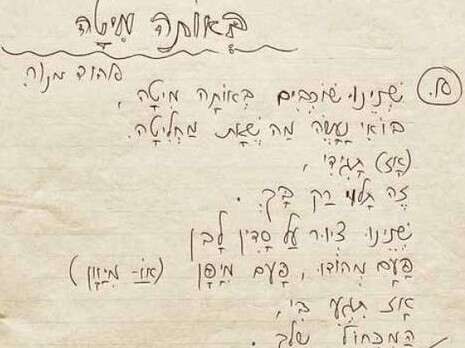 בְּאוֹתָה מִיטָה
אהוד מנור
שְׁנֵינוּ שׁוֹכְבִים בְּאוֹתָה מִיטָה,
בּוֹאִי נַעֲשֶׂה מַה שֶׁאַתְּ מַחְלִיטָה.
(אָז) תַּגִּידִי,
זֶה תָּלוּי רַק בָּךְ.
שְׁנֵינוּ צִיּוּר עַל סָדִין לָבָן
פַּעַם מֵהוֹדוּ, פַּעַם מִיַּפָּן (אוֹ- מִיָּוָון)
אָז תִּגְּעִי בִּי,
הַמִּכְחוֹל שֶׁלָּךְ.